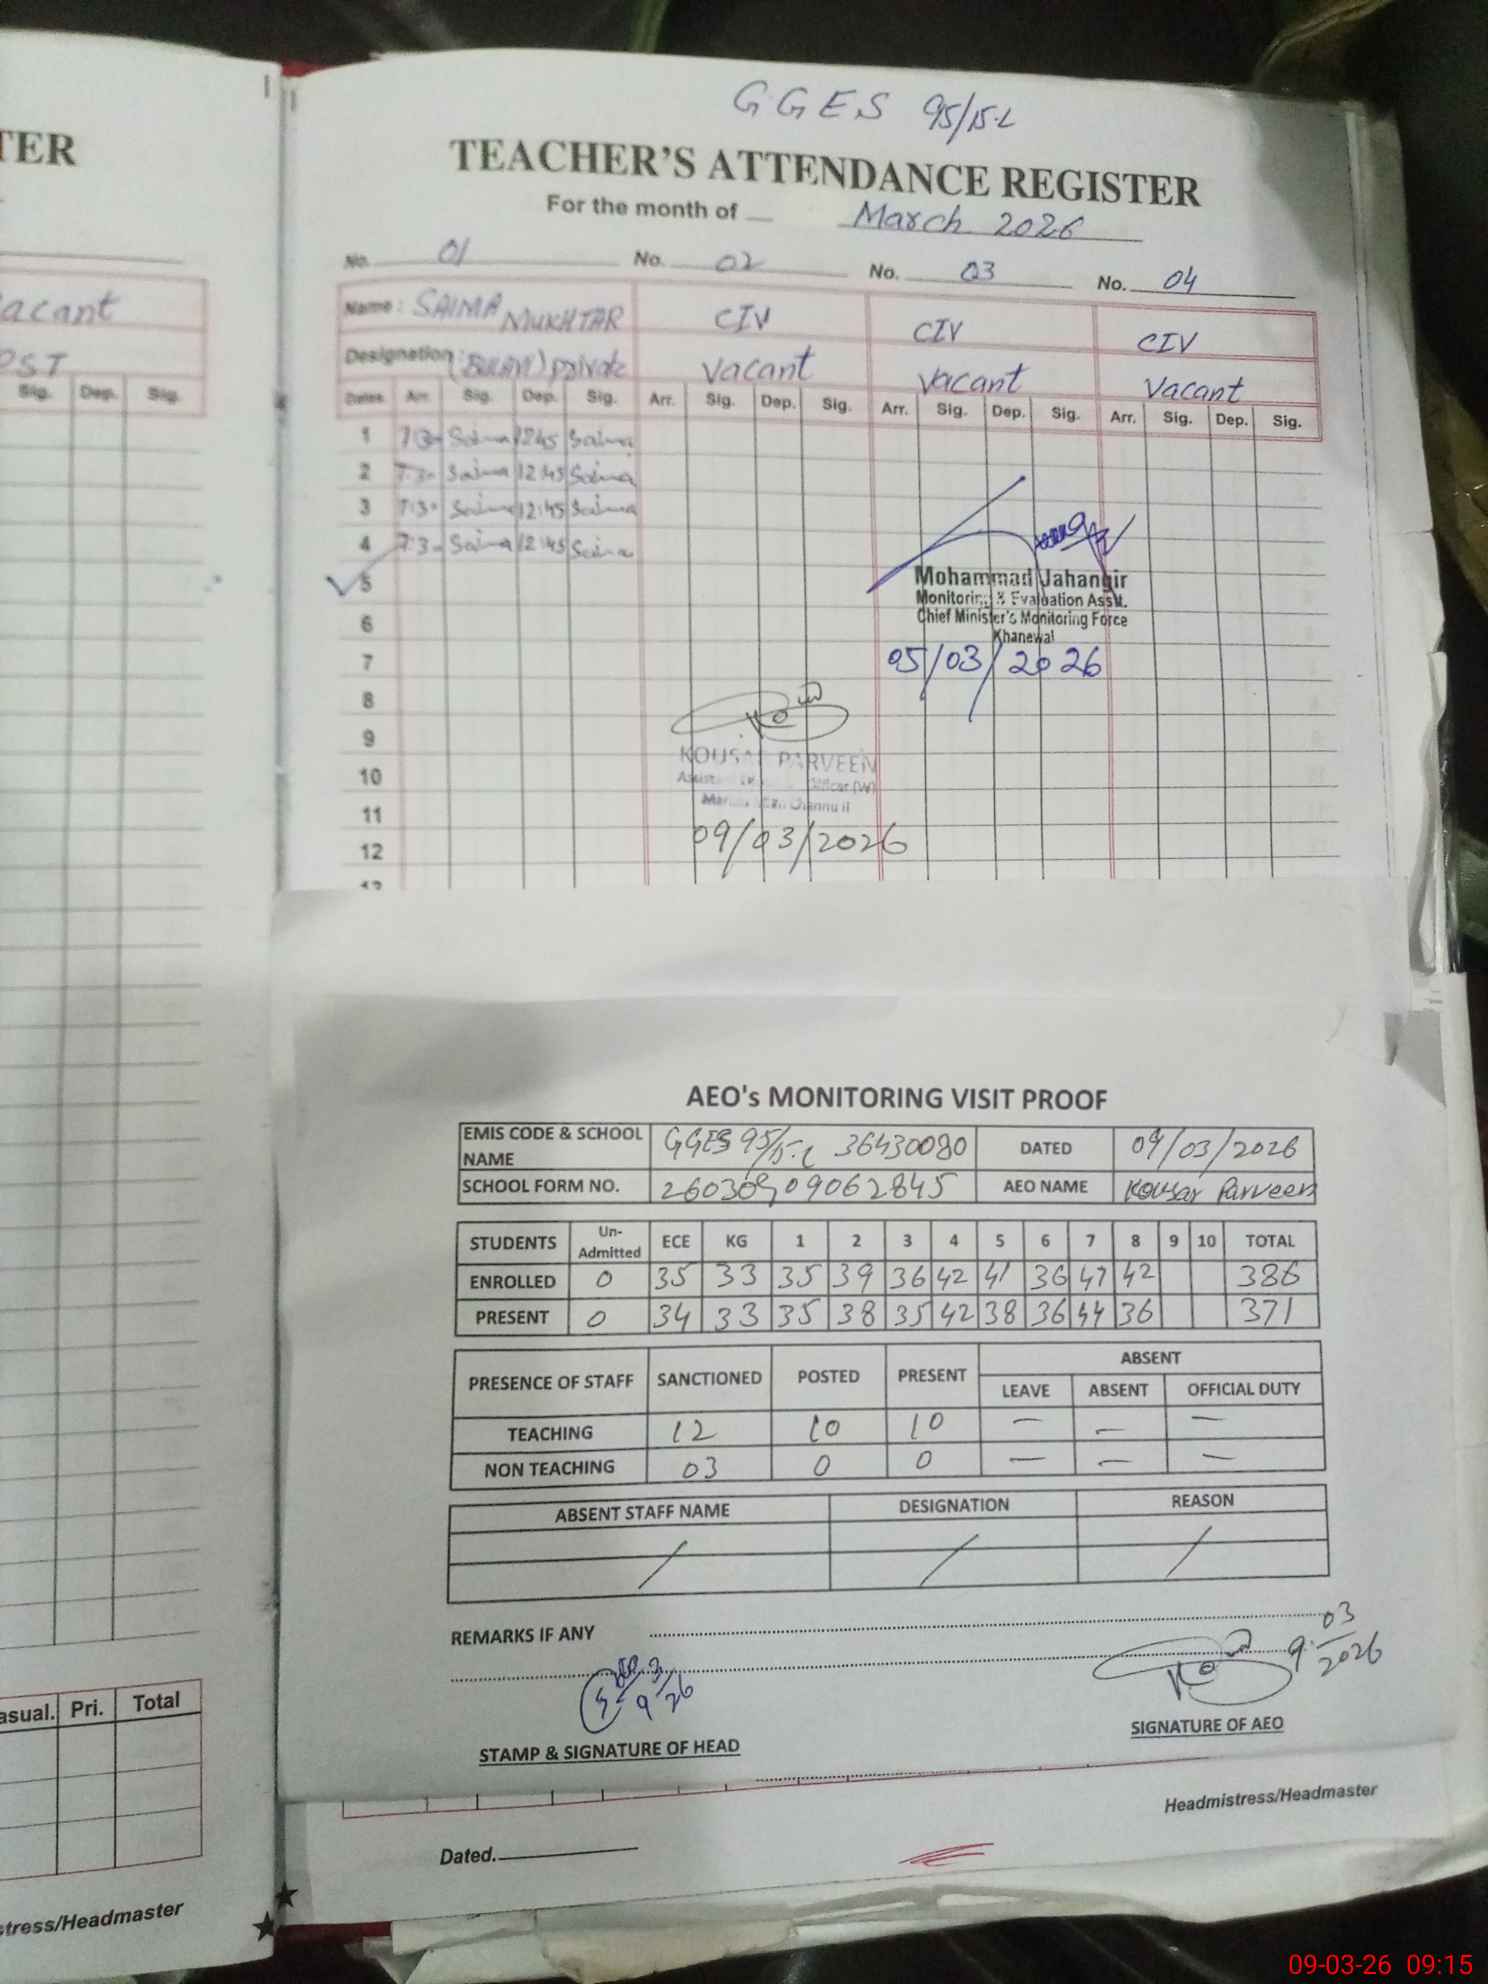 GGES 95/15-L
TER
TEACHER'S ATTENDANCE REGISTER
For the month of March 2026
No. 01 No. 02 No. 03 No. 04
Name: SAIMA MUKHTAR CIV CIV CIV
Designation: private Vacant Vacant Vacant
acant
PST
Sig. Dep. Sig.
Dates Arr. Sig. Dep. Sig. Arr. Sig. Dep. Sig. Arr. Sig. Dep. Sig. Arr. Sig. Dep. Sig.
1 7:30 Saima 12:45 Saima
2 7:30 Saima 12:45 Saima
3 7:30 Saima 12:45 Saima
4 7:30 Saima 12:45 Saima
5
6
7
8
9
10
11
12
Mohammad Jahangir
Monitoring & Evaluation Asstt.
Chief Minister's Monitoring Force
Khanewal
05/03/2026
KOUSAR PARVEEN
09/03/2026
AEO's MONITORING VISIT PROOF
EMIS CODE & SCHOOL NAME GGES 95/15-L 36430080 DATED 09/03/2026
SCHOOL FORM NO. 26030909062845 AEO NAME Kousar Parveen
STUDENTS Un-Admitted ECE KG 1 2 3 4 5 6 7 8 9 10 TOTAL
ENROLLED 0 35 33 35 39 36 42 41 36 47 42 386
PRESENT 0 34 33 35 38 35 42 38 36 44 36 371
PRESENCE OF STAFF SANCTIONED POSTED PRESENT ABSENT
LEAVE ABSENT OFFICIAL DUTY
TEACHING 12 10 10 — — —
NON TEACHING 03 0 0 — — —
ABSENT STAFF NAME DESIGNATION REASON
REMARKS IF ANY
9-03/2026
STAMP & SIGNATURE OF HEAD
SIGNATURE OF AEO
asual. Pri. Total
Headmistress/Headmaster
Dated.
stress/Headmaster
09-03-26 09:15